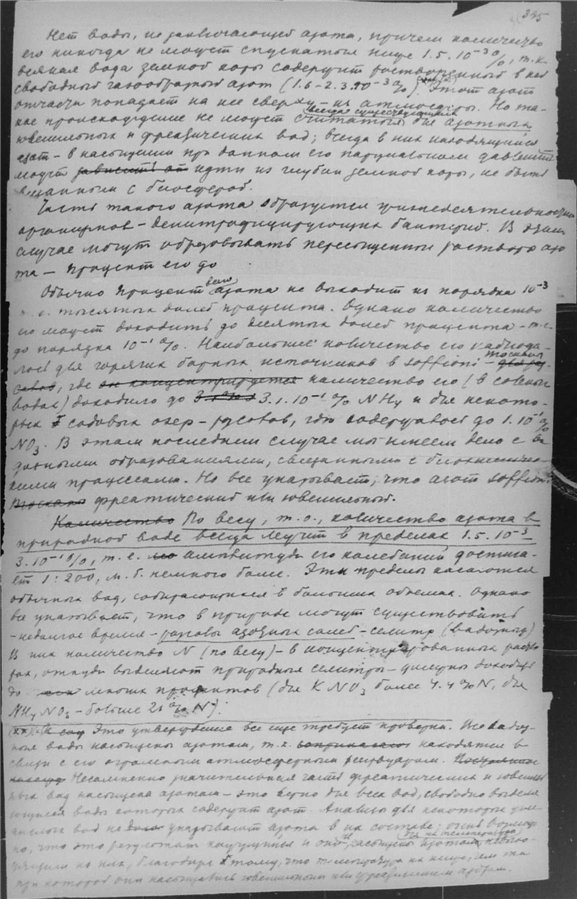 335
Нет воды, не заключающей азота, причем количество
его никогда не может спускаться ниже 1.5.10⁻³%, т.к.
всякая вода земной коры содержит растворенный в ней
свободный газообразный азот (1.6-2.3.10⁻³%). Этот азот
отчасти попадает на нее сверху - из атмосферы. Но та-
кое происхождение не может считаться для азота
ювенильных и фреатических вод; всегда в них находящийся
азот - в насыщении при данном его парциальном давлении
может идти из глубин земной коры, не быть
связанным с биосферой.
Часть такого азота образуется жизнедеятельностью
организмов - денитрифицирующих бактерий. В этом
случае могут образовывать пересыщенные растворы азо
та - процент его до
Обычно процент азота не выходит из порядка 10⁻³
т.е. тысячных долей процента. Однако количество
его может доходить до десятых долей процента - т.е.
до порядка 10⁻¹%. Наибольшее количество его наблюда-
лось для горячих борных источников в soffioni - Тоскан
где количество его (в
водах) доходило до 3.1.10⁻¹% NH₄ и для некото-
рых содовых озер - где содержавост до 1.10⁻¹%
NO₃. В этом последнем случае мы имеем дело с
данными образованиями, связанными с биохимичес
кими процессами. Но все указывает, что азот soffioni
фреатический или ювенильный.
Количество По весу, т.о., количество азота в
природной воде всегда лежит в пределах 1.5.10⁻³
3.10⁻¹%, т.е. амплитуда его колебаний достига-
ет 1:200, м.б. немного более. Эти пределы касаются
обычных вод, собирающихся в больших объемах. Однако
все указывает, что в природе могут существовать
- недолгое время - рассолы азотных солей - селитр
В них количество N (по весу) - в концентрированных раство
рах, откуда выделяют природные селитры - должно доходить
до многих процентов (для KNO₃ более 4.4% N, для
NH₄NO₃ - больше 21% N).
Это утверждение все еще требует проверки.
воды насыщены азотом, т.к. находятся в
связи с его огромным атмосферным резервуаром.
Несомненно значительная часть фреатических и ювениль
ных вод насыщена азотом - это видно для всех вод, свободно выделя
ющихся воды которых содержат азот. Анализы для некоторых
вод не указывают азота в их составе;
но, что это результат
из них, благодаря тому, что температура их ниже, чем та
при которой они насыщались ювенильным или фреатическим азотом.